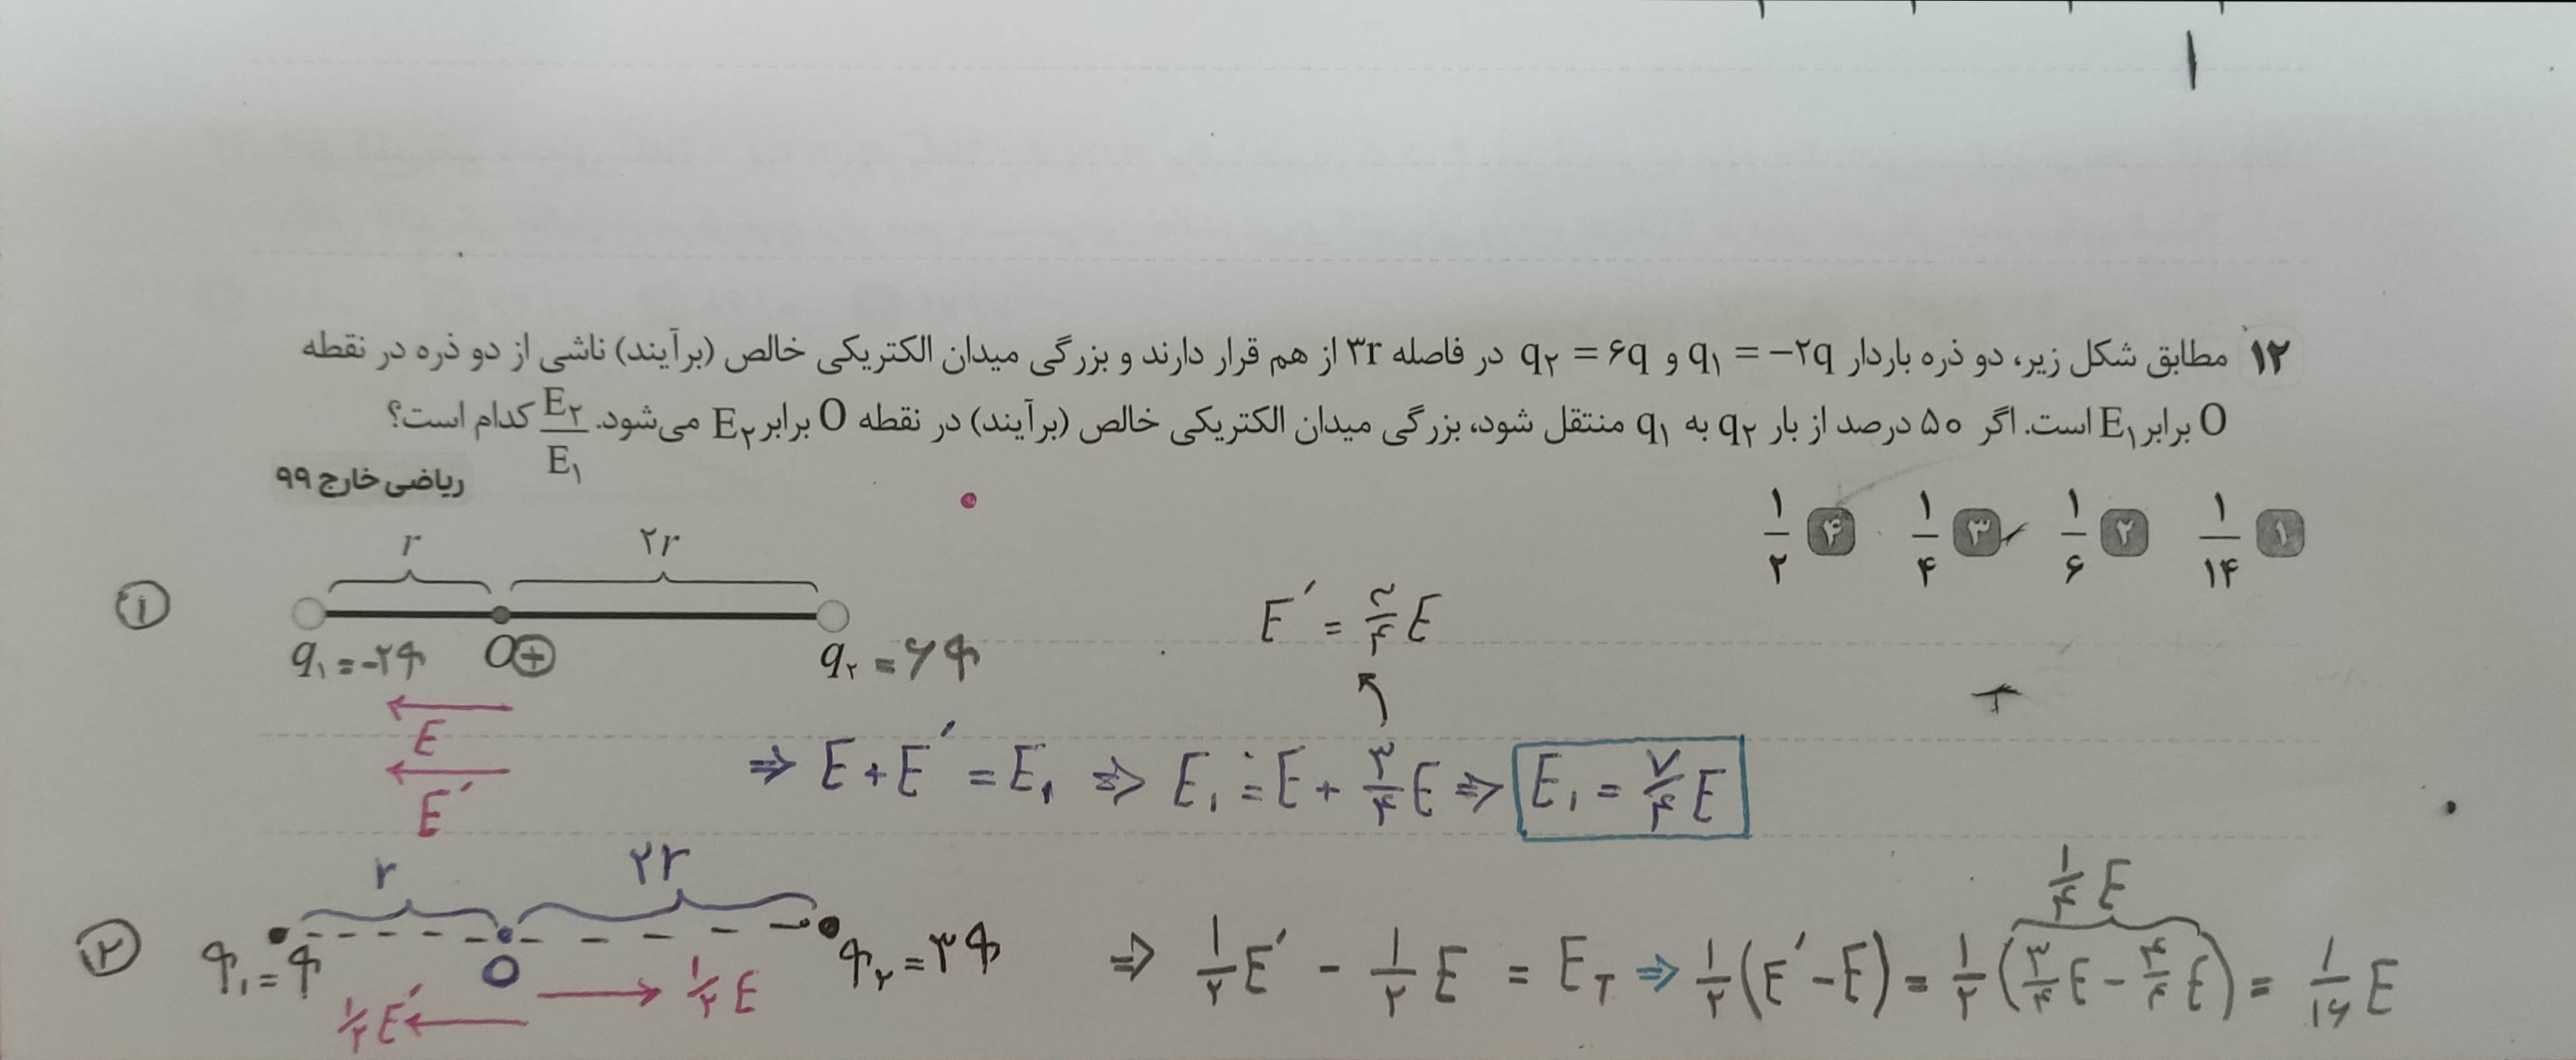 ۱۲ مطابق شکل زیر، دو ذره باردار q₁ = −۲q و q₂ = ۶q در فاصله ۳r از هم قرار دارند و بزرگی میدان الکتریکی خالص (برآیند) ناشی از دو ذره در نقطه
O برابر E₁ است. اگر ۵۰ درصد از بار q₂ به q₁ منتقل شود، بزرگی میدان الکتریکی خالص (برآیند) در نقطه O برابر E₂ می‌شود. E₂/E₁ کدام است؟
ریاضی خارج ۹۹
۱ ۱/۱۴ ۲ ۱/۶ ۳ ۱/۴ ۴ ۱/۲
r ۲r
①
q₁ = -۲q O⊕ q₂ = ۶q
E′ = ۳/۴ E
E
E′
⇒ E + E′ = E₁ ⇒ E₁ = E + ۳/۴ E ⇒ E₁ = ۷/۴ E
r ۲r
۱/۴ E
②
q₁ = q O q₂ = ۳q
۱/۲ E′ ۱/۲ E
⇒ ۱/۲ E′ - ۱/۲ E = E_T ⇒ ۱/۲ (E′ - E) = ۱/۲ (۳/۴ E - ۴/۴ E) = ۱/۱۶ E